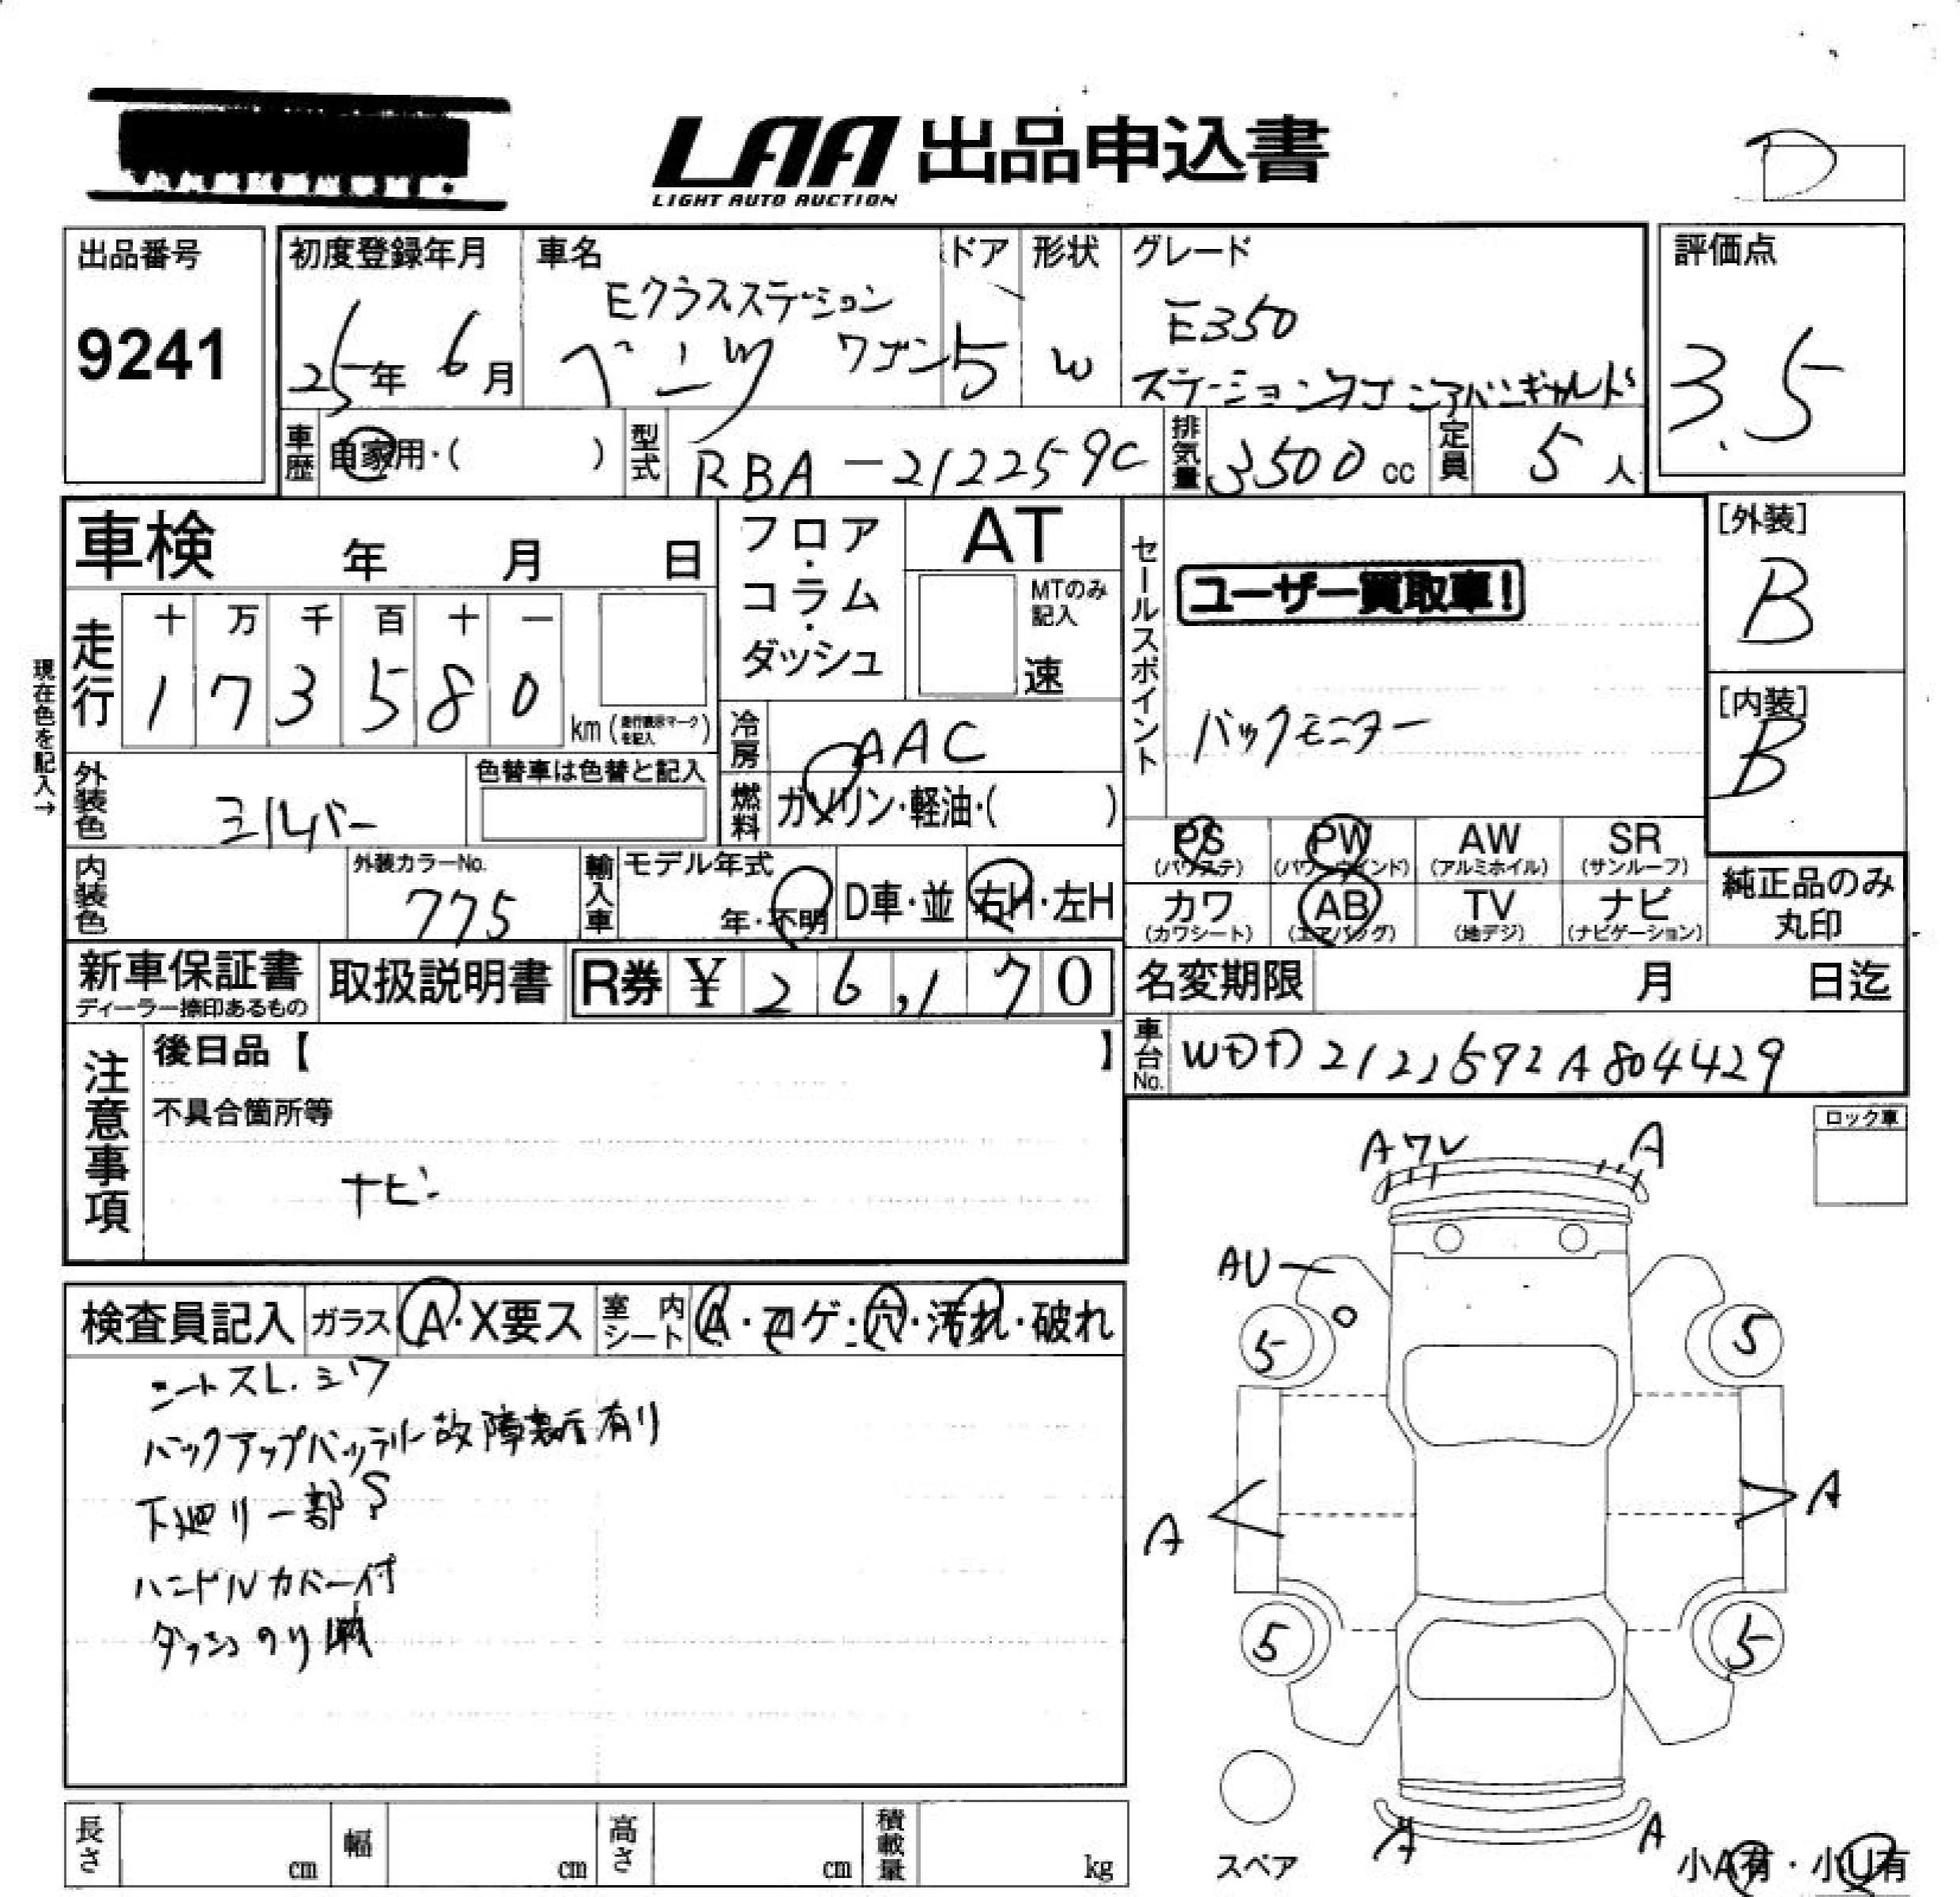 LAA 出品申込書
LIGHT AUTO AUCTION
D
出品番号
9241
初度登録年月
25年 6月
車名
Eクラスステーション
ベンツ ワゴン
ドア
5
形状
W
グレード
E350
ステーションワゴンアバンギャルド
評価点
3.5
車歴
自家用・( )
型式
RBA-212259C
排気量
3500 cc
定員
5 人
車検 年 月 日
フロア・コラム・ダッシュ
AT
MTのみ記入
速
セールスポイント
ユーザー買取車!
バックモニター
[外装]
B
[内装]
B
現在色を記入→
走行
十 万 千 百 十 一
1 7 3 5 8 0
km (走行表示マークを記入)
冷房
AAC
燃料
ガソリン・軽油・( )
外装色
シルバー
色替車は色替と記入
内装色
外装カラーNo.
775
輸入車
モデル年式
年・不明
D車・並
右H・左H
PS (パワステ)
PW (パワーウインド)
AW (アルミホイル)
SR (サンルーフ)
カワ (カワシート)
AB (エアバッグ)
TV (地デジ)
ナビ (ナビゲーション)
純正品のみ丸印
新車保証書
ディーラー捺印あるもの
取扱説明書
R券 ¥ 26,170
名変期限 月 日迄
車台No.
WDD2122592A804429
注意事項
後日品【 】
不具合箇所等
ナビ
ロック車
検査員記入
ガラス
A・X要ス
室内シート
A・コゲ・穴・汚れ・破れ
シートスレ.シワ
バックアップバッテリー故障表示有り
下廻り一部S
ハンドルカバー付
ダッシュのり跡
Aワレ
A
AU
5
5
A
A
5
5
A
A
スペア
小A有・小U有
長さ cm
幅 cm
高さ cm
積載量 kg